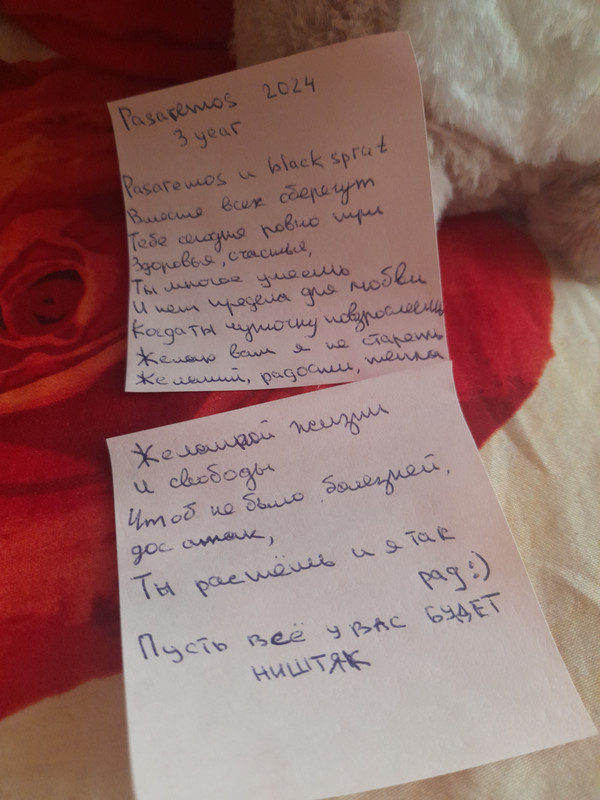 Pasaremos 2024
3 year
Pasaremos и black sprut
Вместе всех сберегут
Тебе сегодня ровно три
Здоровья, счастья,
Ты многое умеешь
И нет предела для любви
Когда ты чуточку повзрослеешь
Желаю вам я не стареть
Желаний, радости, тепла
Желанной жизни
и свободы
Чтоб не было болезней,
дос атак,
Ты растёшь и я так
рад :)
Пусть всё у вас БУДЕТ
НИШТЯК